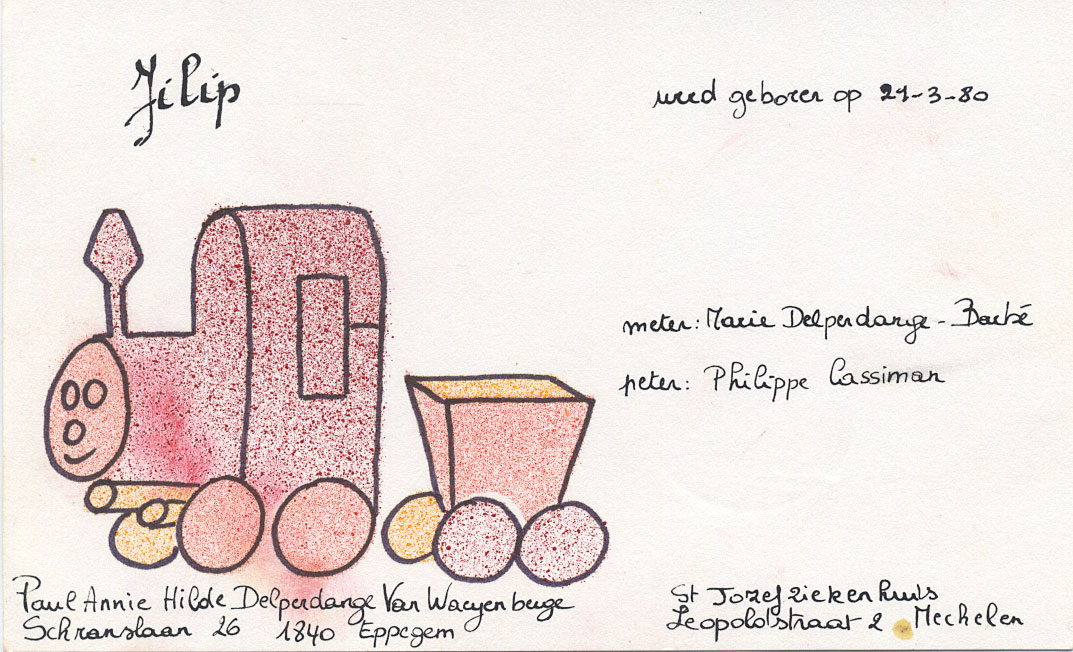 Filip
werd geboren op 21-3-80
meter: Marie Delperdange - Barbé
peter: Philippe Cassiman
Paul Annie Hilde Delperdange Van Waeyenberge
Schranslaan 26 1840 Eppegem
St Jozefziekenhuis
Leopoldstraat 2 Mechelen